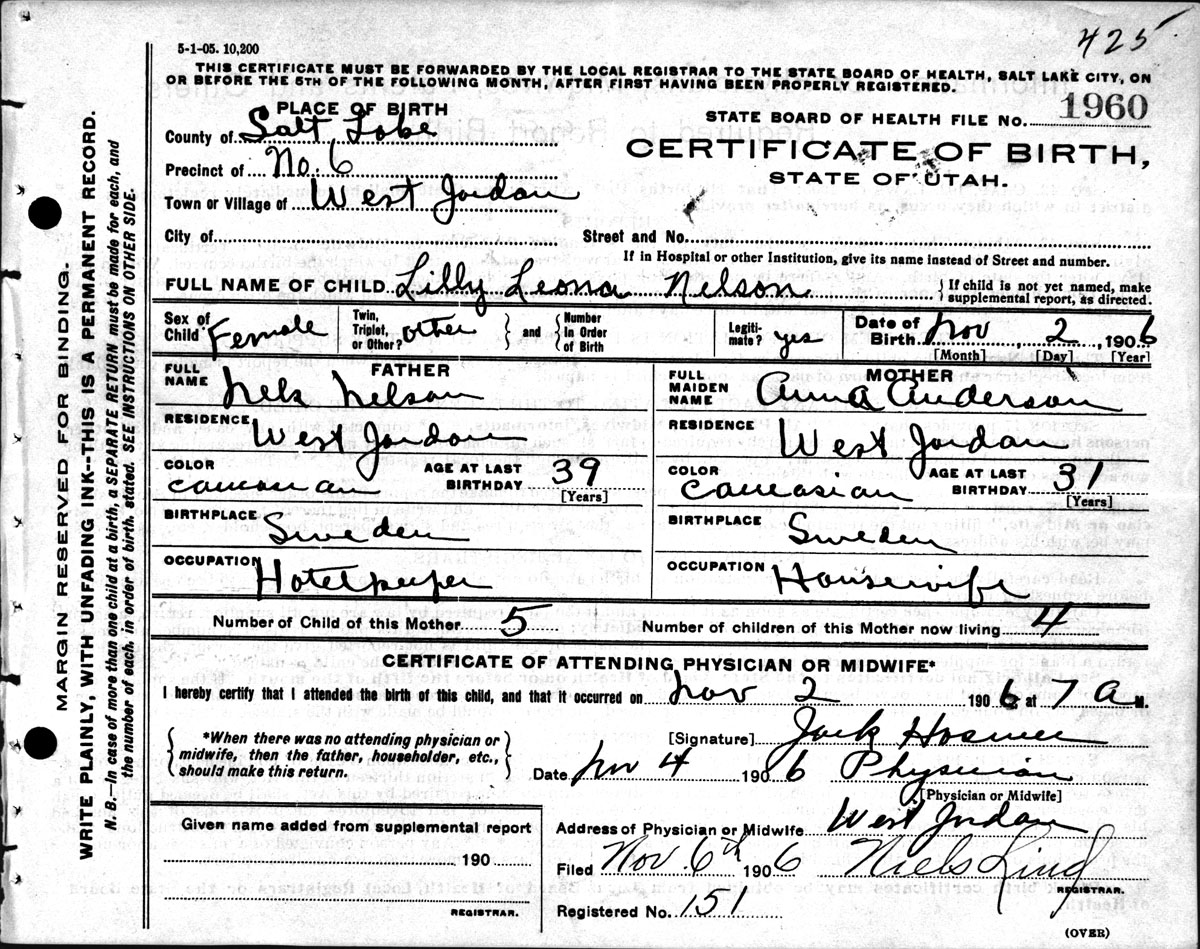 425
5-1-05. 10,200
THIS CERTIFICATE MUST BE FORWARDED BY THE LOCAL REGISTRAR TO THE STATE BOARD OF HEALTH, SALT LAKE CITY, ON
OR BEFORE THE 5TH OF THE FOLLOWING MONTH, AFTER FIRST HAVING BEEN PROPERLY REGISTERED.
PLACE OF BIRTH
County of Salt Lake
STATE BOARD OF HEALTH FILE NO. 1960
Precinct of No. 6
CERTIFICATE OF BIRTH,
STATE OF UTAH.
Town or Village of West Jordan
City of Street and No.
If in Hospital or other Institution, give its name instead of Street and number.
FULL NAME OF CHILD Lilly Leona Nelson { If child is not yet named, make supplemental report, as directed.
Sex of Child Female Twin, Triplet, or Other? other } and { Number In Order of Birth Legiti-mate? yes Date of Birth Nov 2, 1906
[Month] [Day] [Year]
FATHER MOTHER
FULL NAME Nels Nelson FULL MAIDEN NAME Anna Anderson
RESIDENCE West Jordan RESIDENCE West Jordan
COLOR caucasian AGE AT LAST BIRTHDAY 39 [Years] COLOR Caucasian AGE AT LAST BIRTHDAY 31 [Years]
BIRTHPLACE Sweden BIRTHPLACE Sweden
OCCUPATION Hotelkeeper OCCUPATION Housewife
Number of Child of this Mother 5 Number of children of this Mother now living 4
CERTIFICATE OF ATTENDING PHYSICIAN OR MIDWIFE*
I hereby certify that I attended the birth of this child, and that it occurred on Nov 2 1906 at 7 A M.
{ *When there was no attending physician or
midwife, then the father, householder, etc.,
should make this return. }
[Signature] Jack Hosmer
Date Nov 4 1906 Physician
[Physician or Midwife]
Given name added from supplemental report
190
REGISTRAR.
Address of Physician or Midwife West Jordan
Filed Nov. 6th 1906 Niels Lind
REGISTRAR.
Registered No. 151
(OVER)
MARGIN RESERVED FOR BINDING.
WRITE PLAINLY, WITH UNFADING INK--THIS IS A PERMANENT RECORD.
N. B.—In case of more than one child at a birth, a SEPARATE RETURN must be made for each, and
the number of each, in order of birth, stated. SEE INSTRUCTIONS ON OTHER SIDE.